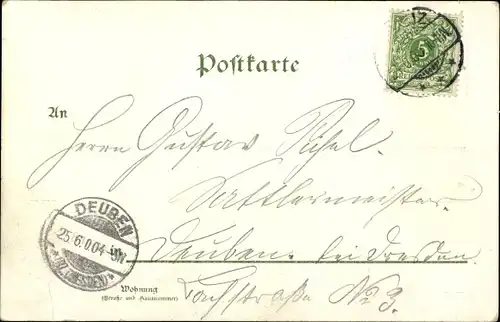 Postkarte
5
An
Herrn Gustav
Sattlermeister
DEUBEN
25.6.00.4-5N
(BZ. DRESDEN)
Deuben bei Dresden
Wohnung
(Straße und Hausnummer)
No 3.